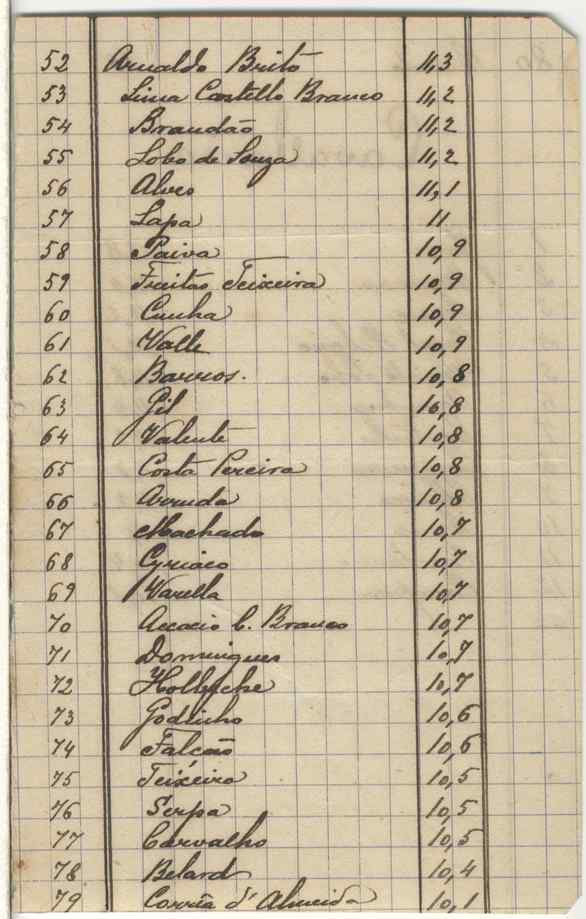 52 Arnaldo Brito 11,3
53 Lima Castello Branco 11,2
54 Brandão 11,2
55 Lobo de Souza 11,2
56 Alves 11,1
57 Lapa 11
58 Paiva 10,9
59 Freitas Teixeira 10,9
60 Cunha 10,9
61 Valle 10,9
62 Barros. 10,8
63 Gil 10,8
64 Valente 10,8
65 Costa Pereira 10,8
66 Arruda 10,8
67 Machado 10,7
68 Cyriaco 10,7
69 Varella 10,7
70 Accacio C. Branco 10,7
71 Domingues 10,7
72 Holbeche 10,7
73 Godinho 10,6
74 Falcão 10,6
75 Teixeira 10,5
76 Serpa 10,5
77 Carvalho 10,5
78 Belard 10,4
79 Corrêa d'Almeida 10,1